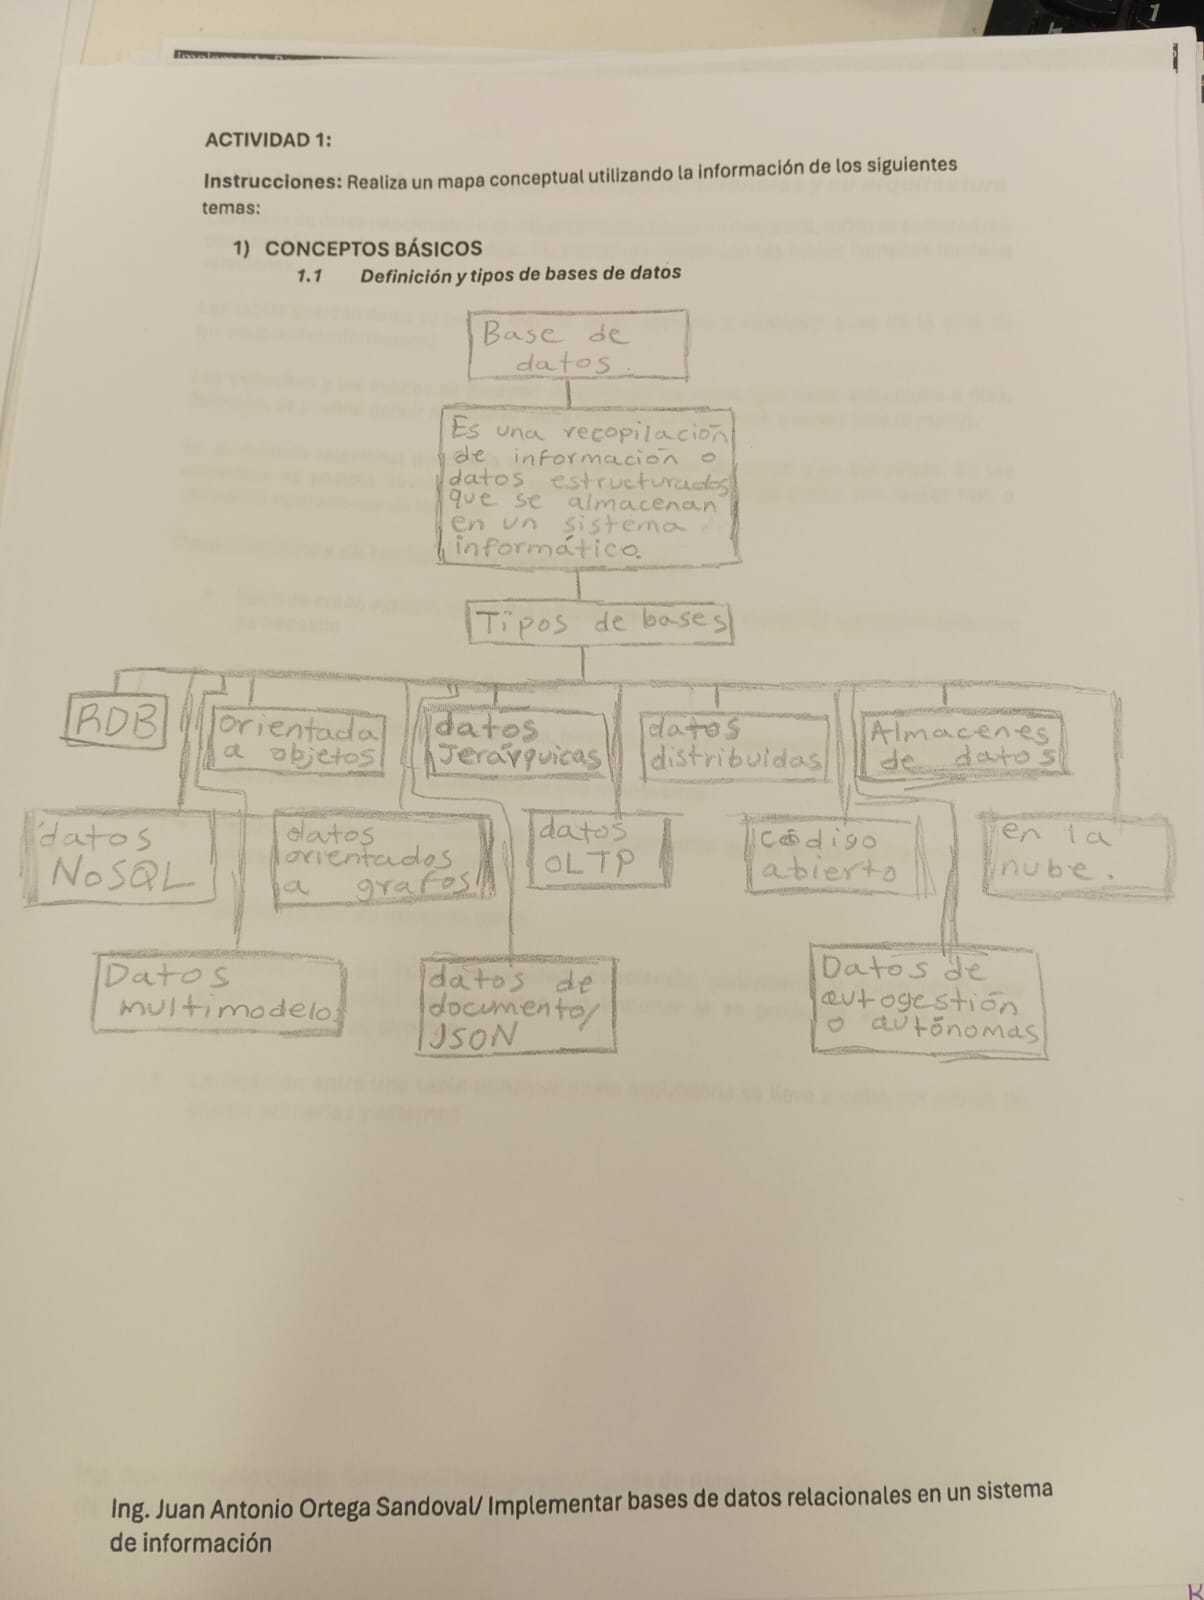 ACTIVIDAD 1:
Instrucciones: Realiza un mapa conceptual utilizando la información de los siguientes
temas:
1) CONCEPTOS BÁSICOS
1.1 Definición y tipos de bases de datos
Base de
datos.
Es una recopilación
de información o
datos estructurados
que se almacenan
en un sistema
informático.
Tipos de bases
RDB
orientada
a objetos
datos
Jerárquicas
datos
distribuidas
Almacenes
de datos
datos
NoSQL
datos
orientados
a grafos
datos
OLTP
código
abierto
en la
nube.
Datos
multimodelo
datos de
documento/
JSON
Datos de
autogestión
o autónomas
Ing. Juan Antonio Ortega Sandoval/ Implementar bases de datos relacionales en un sistema
de información